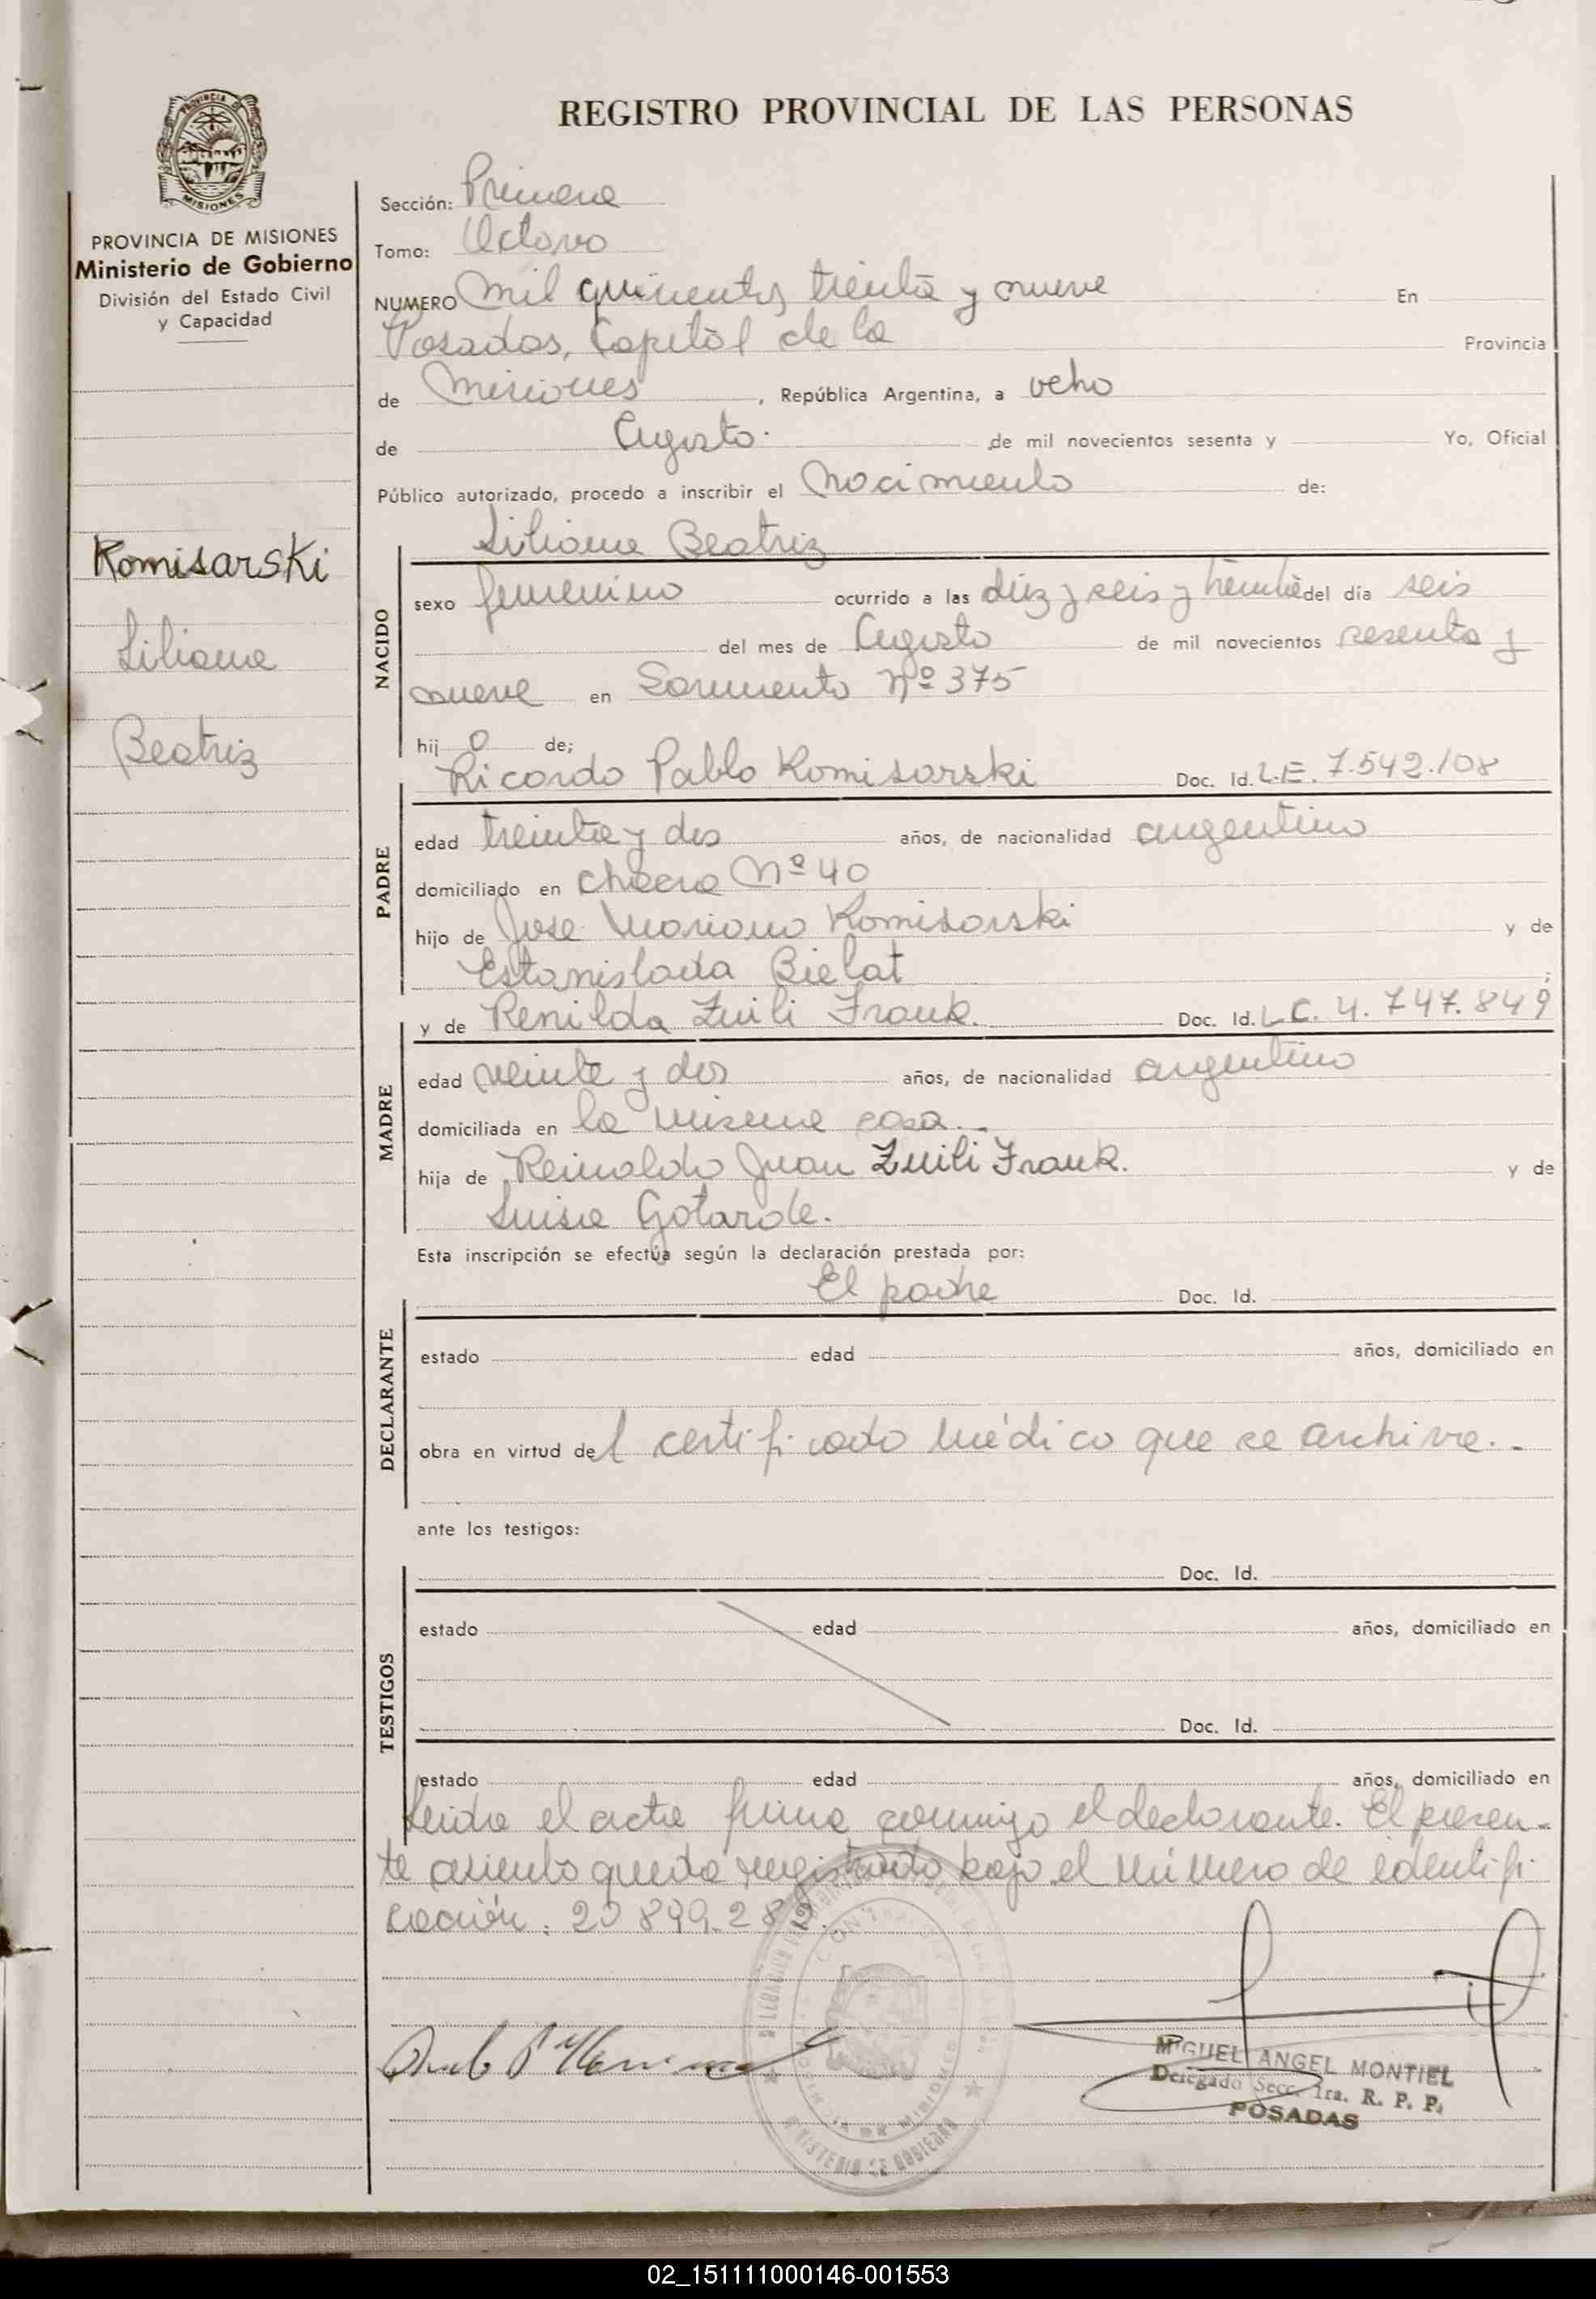 REGISTRO PROVINCIAL DE LAS PERSONAS
PROVINCIA DE MISIONES
Ministerio de Gobierno
División del Estado Civil
y Capacidad
Komisarski
Liliana
Beatriz
Sección: Primera
Tomo: Octavo
NUMERO Mil quinientos treinta y nueve En
Posadas, Capital de la Provincia
de Misiones, República Argentina, a ocho
de Agosto. de mil novecientos sesenta y Yo, Oficial
Público autorizado, procedo a inscribir el Nacimiento de:
Liliana Beatriz
NACIDO
sexo femenino ocurrido a las diez y seis y treinta del día seis
del mes de Agosto de mil novecientos sesenta y
nueve en Sarmiento Nº 375
hij o de;
Ricardo Pablo Komisarski Doc. Id. L.E. 7.542.108
PADRE
edad treinta y dos años, de nacionalidad argentino
domiciliado en chacra Nº 40
hijo de Jose Mariano Komisarski y de
Estanislada Bielat ;
y de Renilda Zuili Frank. Doc. Id. L.C. 4.747.849
MADRE
edad veinte y dos años, de nacionalidad argentino
domiciliada en la misma casa.-
hija de Reinaldo Juan Zuili Frank. y de
Luisa Gotarde.
Esta inscripción se efectúa según la declaración prestada por:
El padre Doc. Id.
DECLARANTE
estado edad años, domiciliado en
obra en virtud del certificado médico que se archiva.-
ante los testigos:
Doc. Id.
TESTIGOS
estado edad años, domiciliado en
Doc. Id.
estado edad años, domiciliado en
Leida el acta firma conmigo el declarante. El presen-
te asiento queda registrado bajo el número de identifi
cación: 20.899.282.
MIGUEL ANGEL MONTIEL
Delegado Secc. 1ra. R. P. P.
POSADAS
MINISTERIO DE GOBIERNO
02_151111000146-001553